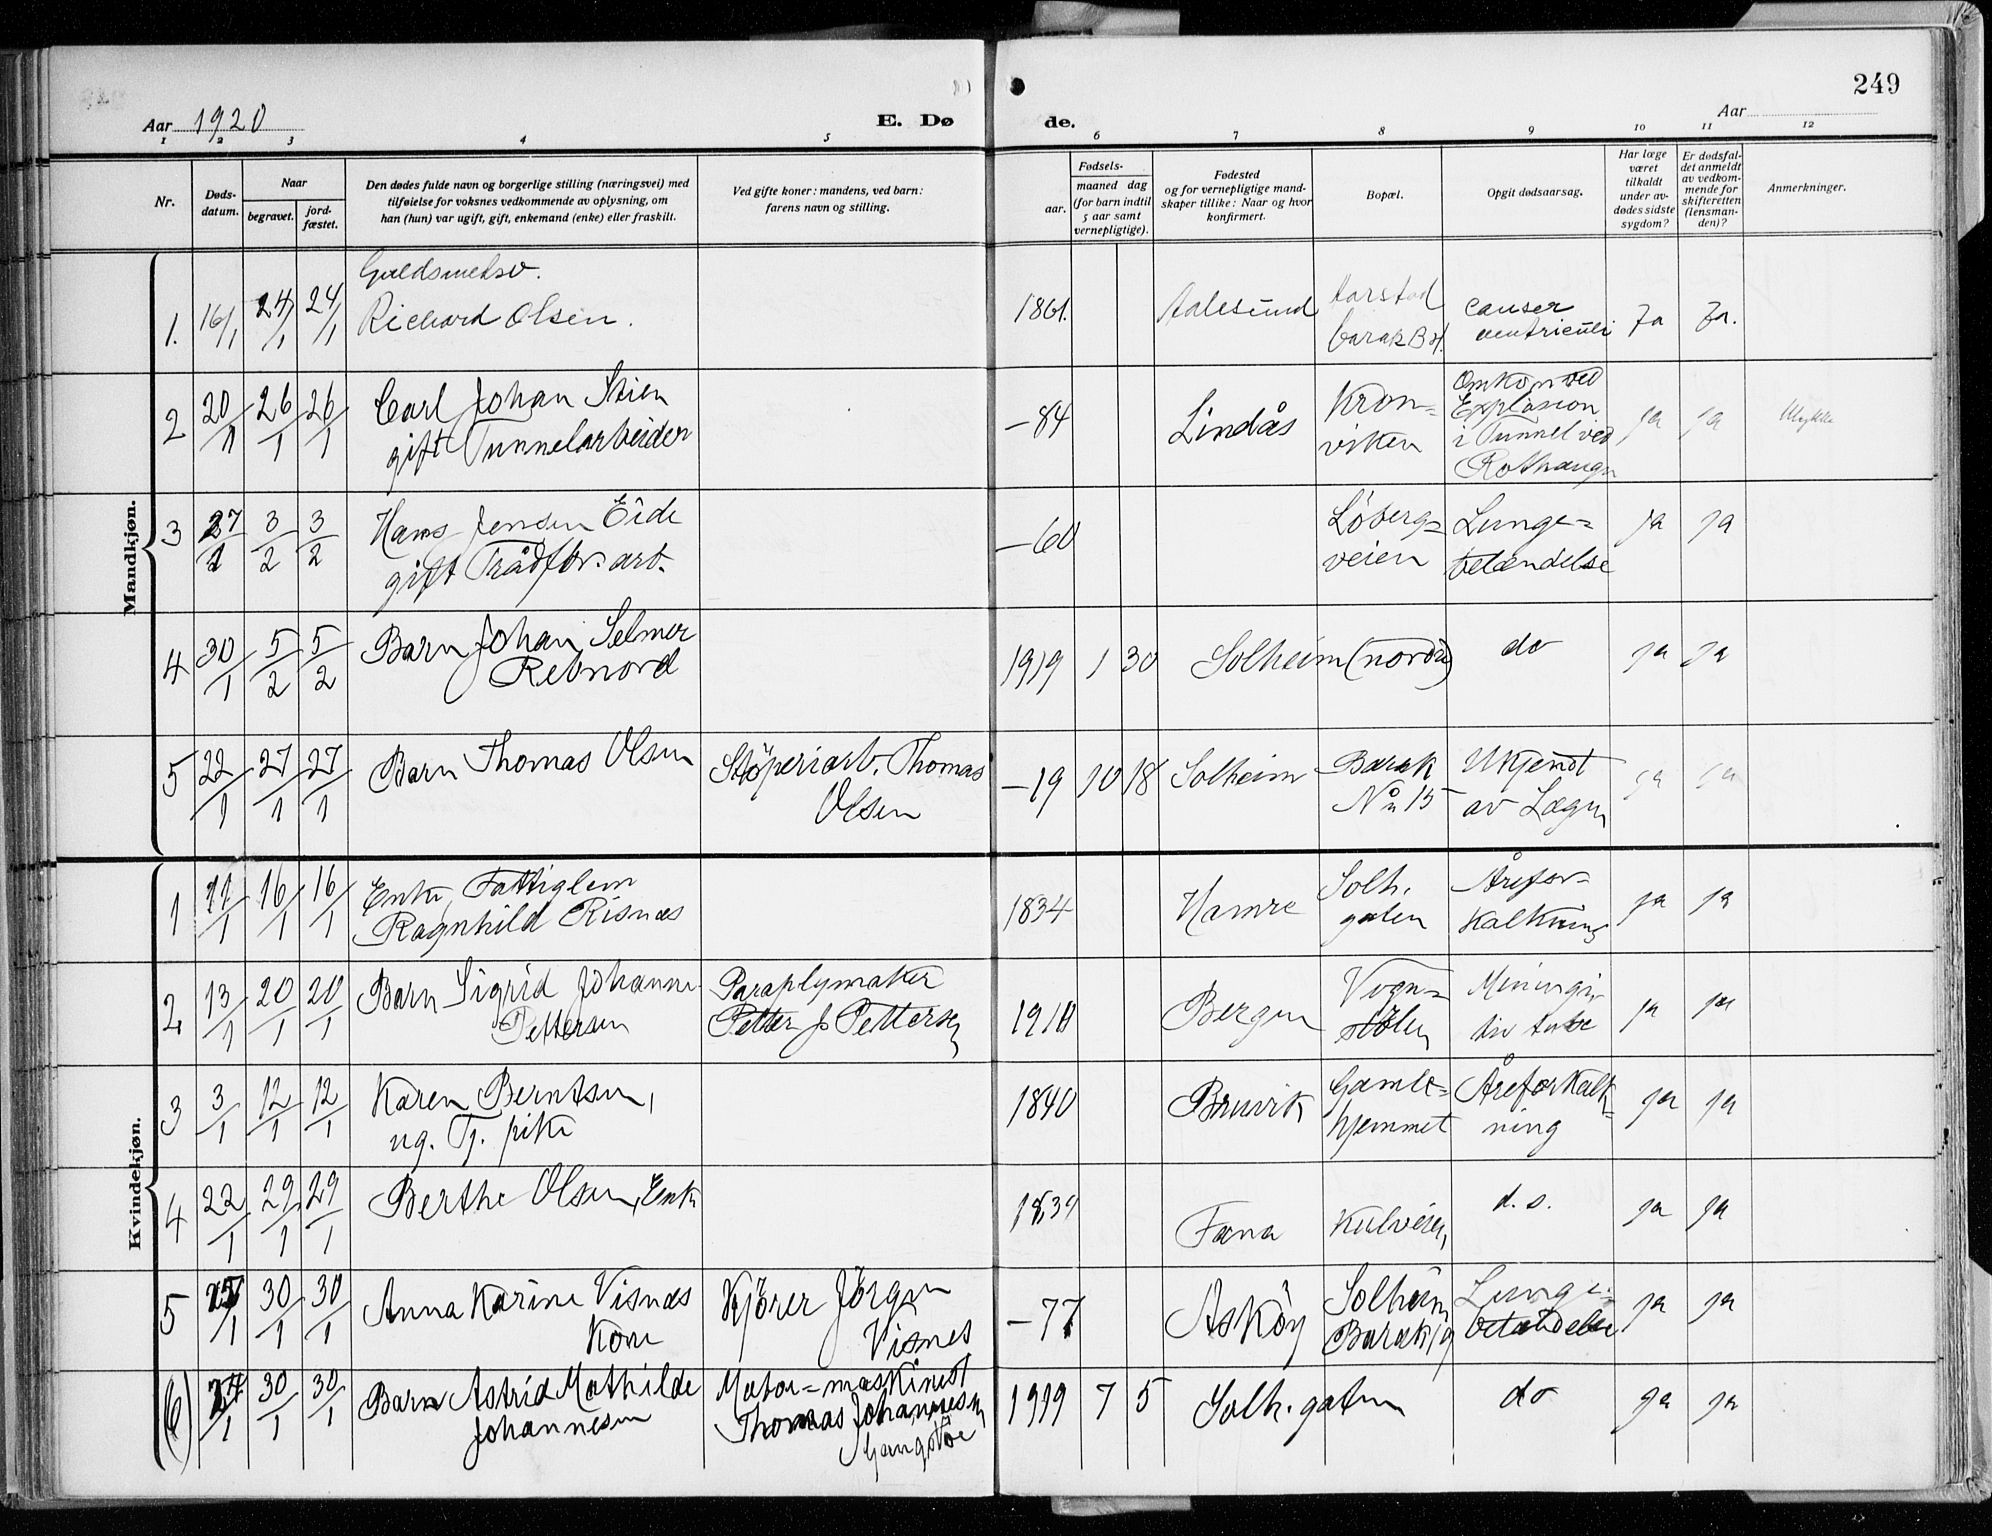 249
Aar 1920
E. Døde.
Aar
1 2 3 4 5 6 7 8 9 10 11 12
Nr.
Dødsdatum.
Naar
begravet.
jordfæstet.
Den dødes fulde navn og borgerlige stilling (næringsvei) med
tilføielse for voksnes vedkommende av oplysning, om
han (hun) var ugift, gift, enkemand (enke) eller fraskilt.
Ved gifte koner: mandens, ved barn:
farens navn og stilling.
Fødsels-
aar.
maaned dag
(for barn indtil
5 aar samt
vernepligtige).
Fødested
og for vernepligtige mand-
skaper tillike: Naar og hvor
konfirmert.
Bopæl.
Opgit dødsaarsag.
Har læge
været
tilkaldt
under av-
dødes sidste
sygdom?
Er dødsfal-
det anmeldt
av vedkom-
mende for
skifteretten
(lensman-
den)?
Anmerkninger.
Mandkjøn.
1. 16/1 24/1 24/1
Richard Olsen.
1861. Aalesund
Aarstad
ventriculi
Ja Ja.
2 20/1 26/1 26/1
Carl Johan Stien
gift Tunnelarbeider
-84 Lindås
Kron-
viken
Omkom ved
Explosion
i Tunnel ved
ja ja Ulykke
3 27/1 3/2 3/2
Hans Jensen Eide
gift Trådfbr. arb.
-60
Löberg-
veien
Lunge-
betændelse
ja ja
4 30/1 5/2 5/2
Barn Johan Selmer
Rebnord
1919 1 30 Solheim (nordre)
do ja ja
5 22/1 27/1 27/1
Barn Thomas Olsen
Stöperiarb. Thomas
Olsen
-19 10 18 Solheim
Barak
No 15
Ukjendt
av Lægen
ja ja
Kvindekjøn.
1 11/1 16/1 16/1
Enke, Fattiglem
Ragnhild Risnæs
1834 Hamre
Solh.
gaten
Årefor-
kalkning
ja ja
2 13/1 20/1 20/1
Barn Sigrid Johanne
Pettersen
Paraplymaker
Petter J. Pettersen
1910 Bergen
Vogn-
stölen
ja ja
3 3/1 12/1 12/1
Karen Berntsen,
ug. Tj. pike
1840 Bruvik
Gamle-
hjemmet
Åreforkalk-
ning
ja ja
4 22/1 29/1 29/1
Berthe Olsen, Enke
1834 Fana
d. s. ja ja
5 30/1 30/1
Anna Karine Visnæs
Kone
Kjörer Jörgen
Visnes
-77 Asköy
Solheim
Barak 19
Lunge-
betændelse
ja ja
(6) 24/1 30/1 30/1
Barn Astrid Mathilde
Johannesen
Motor-maskinist
Thomas Johannesen
1919 7 5 Solh. gaten
do ja ja